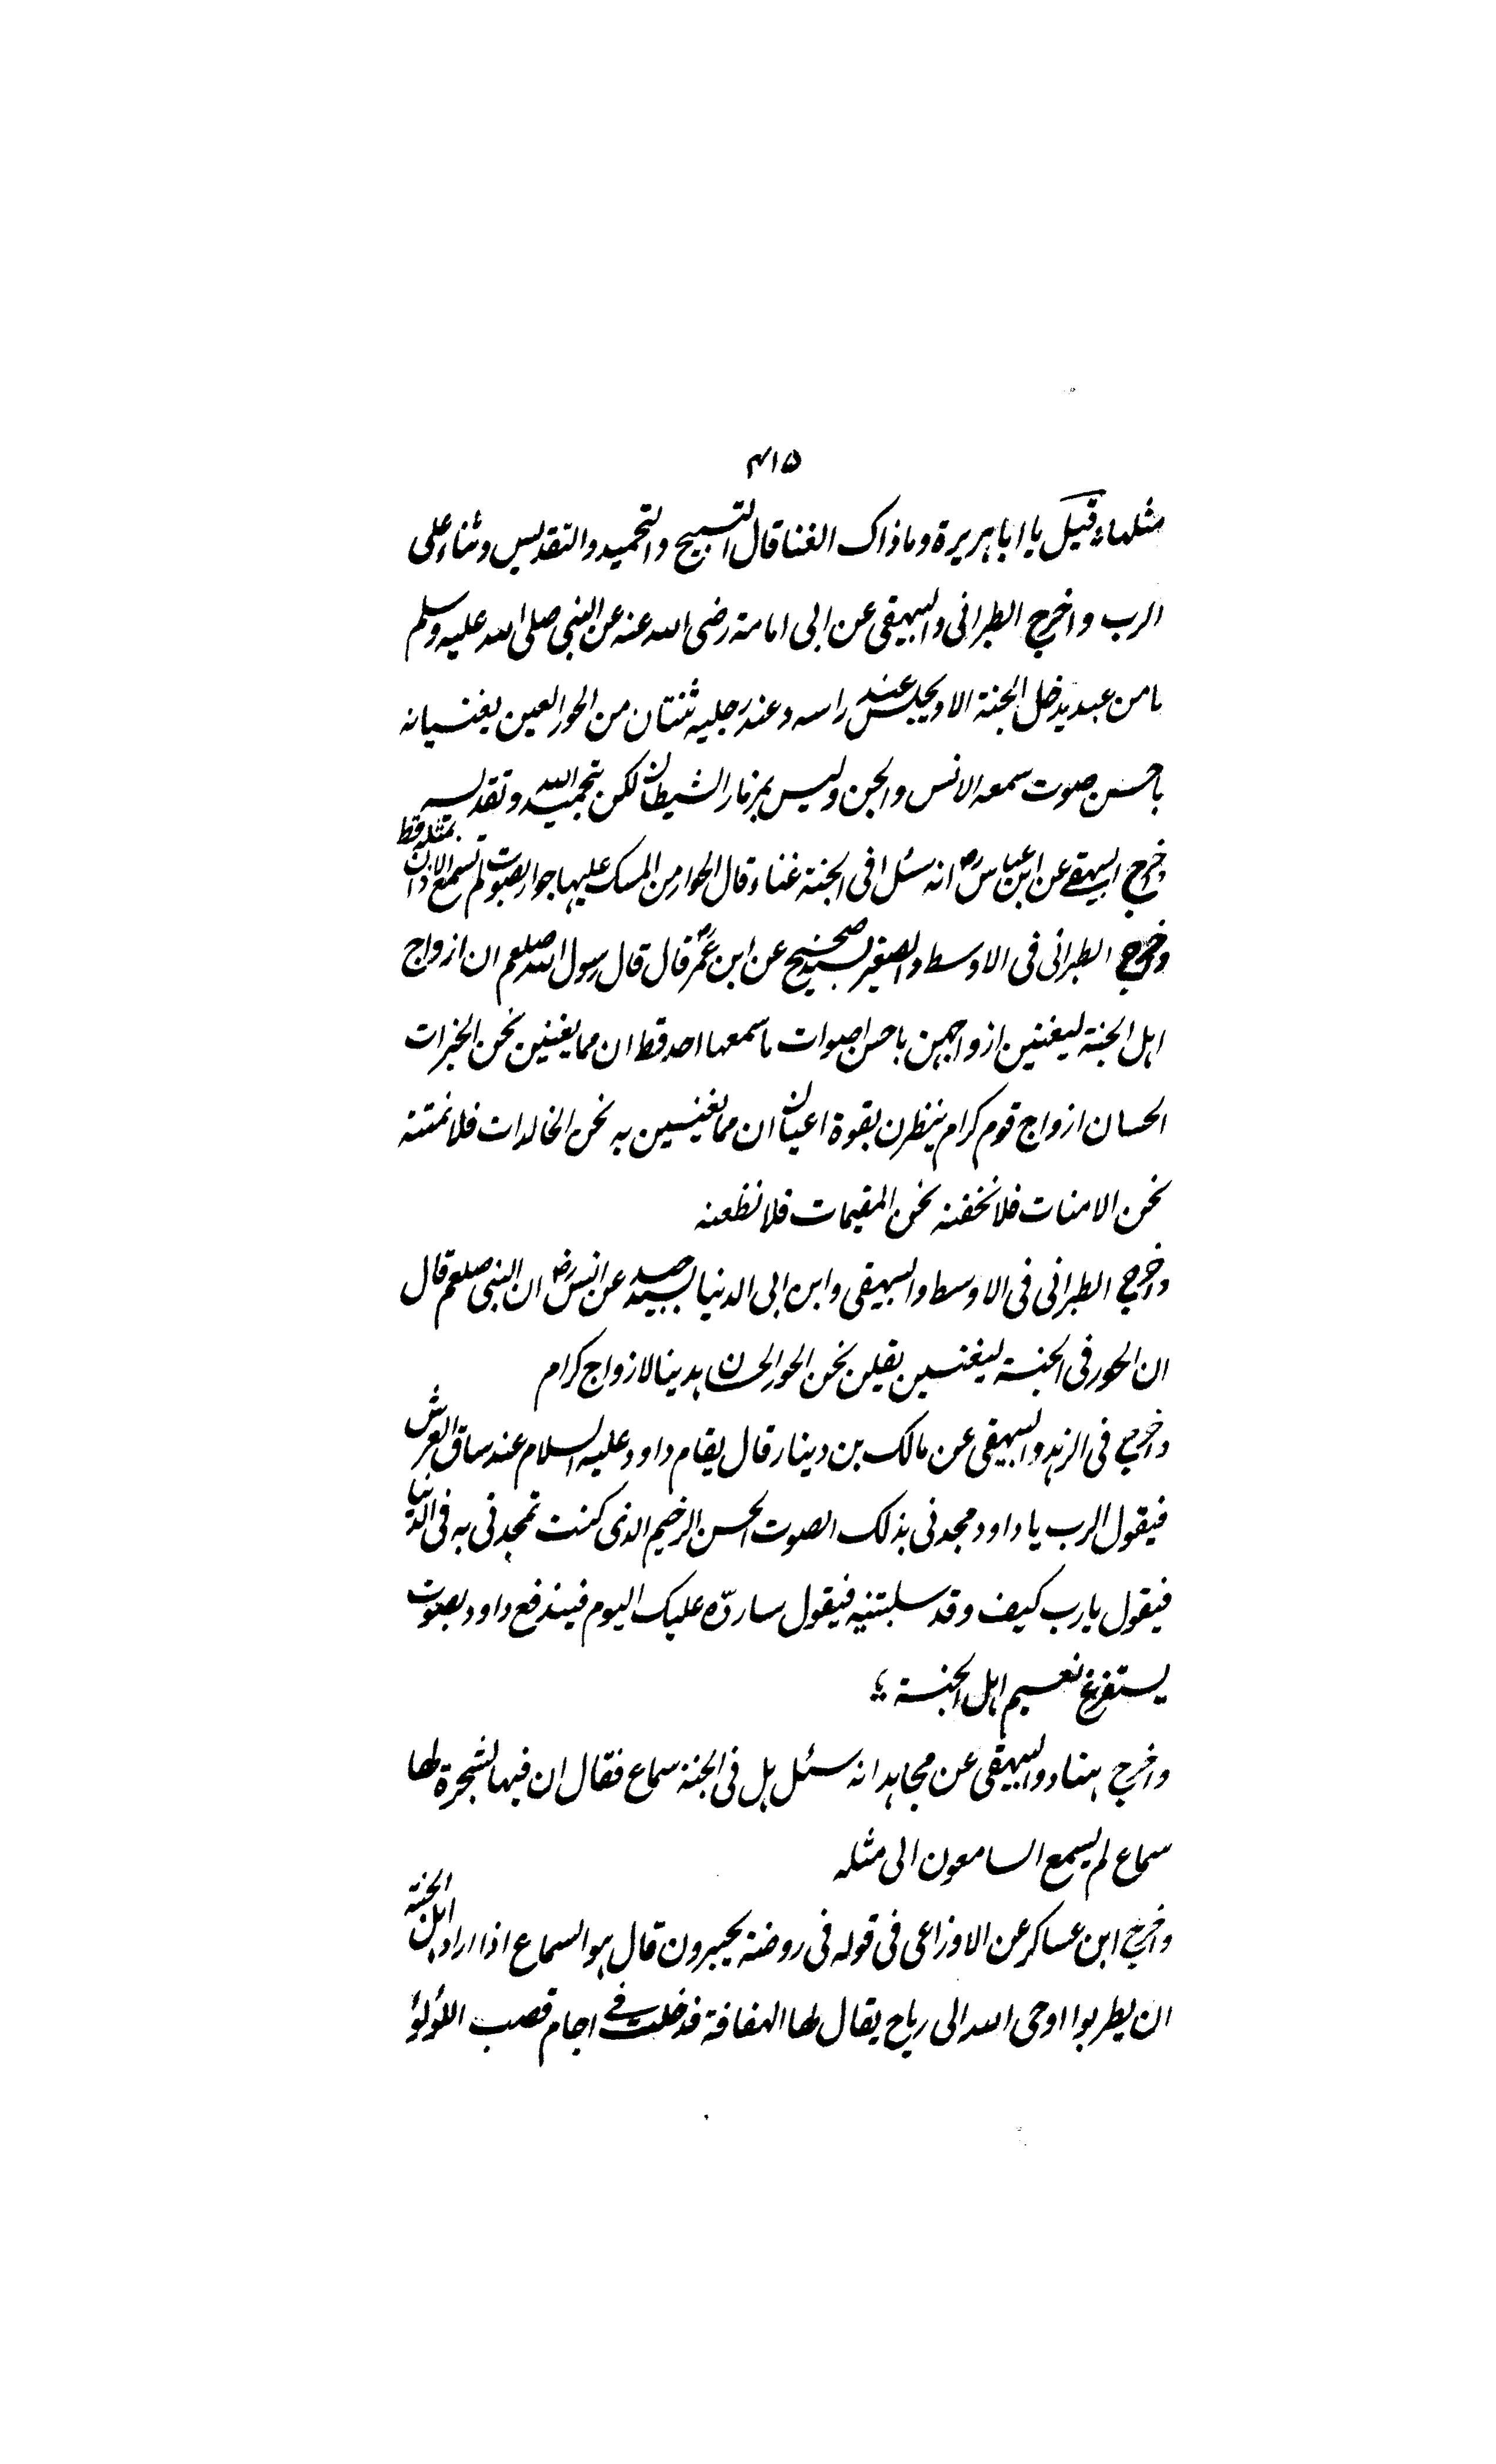 ۴۱۵
مثلها، قيل يا ابا هريرة وما ذاك الغنا قال التسبيح والتحميد والتقديس وثناء على
الرب واخرج الطبرانى والبيهقى عن ابى امامة رضى الله عنه عن النبى صلى الله عليه وسلم
ما من عبد يدخل الجنة الا ويجلس عند راسه وعند رجليه ثنتان من الحور العين يغنيانه
باحسن صوت سمعه الانس والجن وليس بمزمار الشيطان لكن بتحميد الله وتقديسه
واخرج البيهقے عن ابن عباس رض انه سئل افى الجنة غناء قال الجوار من المسك عليها جوار بصوت لم تسمع الاذان بمثله قط
واخرج الطبرانى فى الاوسط والصغير بسند صحيح عن ابن عمر رض قال قال رسول الله صلعم ان ازواج
اهل الجنة ليغنين ازواجهن باحسن اصوات ما سمعها احد قط ان مما يغنين نحن الخيرات
الحسان ازواج قوم كرام ينظرن بقوة اعيان ان مما يغنين به نحن الخالدات فلا نمتنه
نحن الامنات فلا نخفنه نحن المقيمات فلا نظعنه
واخرج الطبرانى فى الاوسط والبيهقى وابن ابى الدنيا بسند جيد عن انس رض ان النبى صلعم قال
ان الحور فى الجنة ليغنين يقلن نحن الحور الحسان هدينا لازواج كرام
واخرج فى الزهد والبيهقى عن مالك بن دينار قال يقام داود عليه السلام عند ساق العرش
فيقول الرب يا داود مجدنى بذلك الصوت الحسن الرخيم الذى كنت تمجدنى به فى الدنيا
فيقول يا رب كيف وقد سلبتنيه فيقول ساردّه عليك اليوم فيندفع داود بصوت
يستفرغ نعيم اهل الجنة ؛
واخرج هناد والبيهقى عن مجاهد انه سئل هل فى الجنة سماع فقال ان فيها لشجرة لها
سماع لم يسمع السامعون الى مثله
واخرج ابن عساكر عن الاوزاعى فى قوله فى روضة يحبرون قال هو السماع اذا اراد اهل الجنة
ان يطربوا اوحى الله الى رياح يقال لها الهفافة فدخلت فے اجام قصب اللؤلؤ